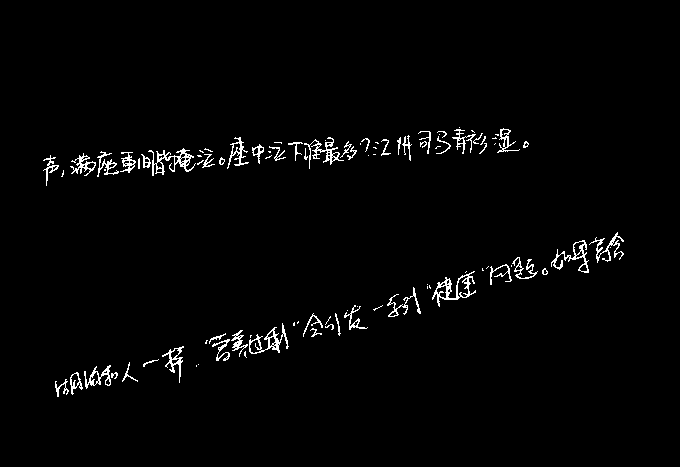 声,满座重闻皆掩泣。座中泣下谁最多?江州司马青衫湿。
湖泊和人一样,“营养过剩”会引发一系列“健康”问题。如果富含